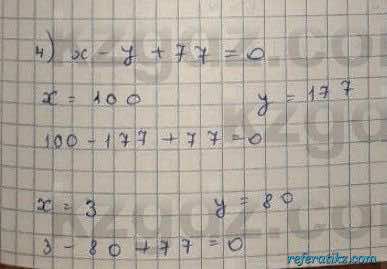 4) x - y + 77 = 0
x = 100 y = 177
100 - 177 + 77 = 0
x = 3 y = 80
3 - 80 + 77 = 0
referatikz.com